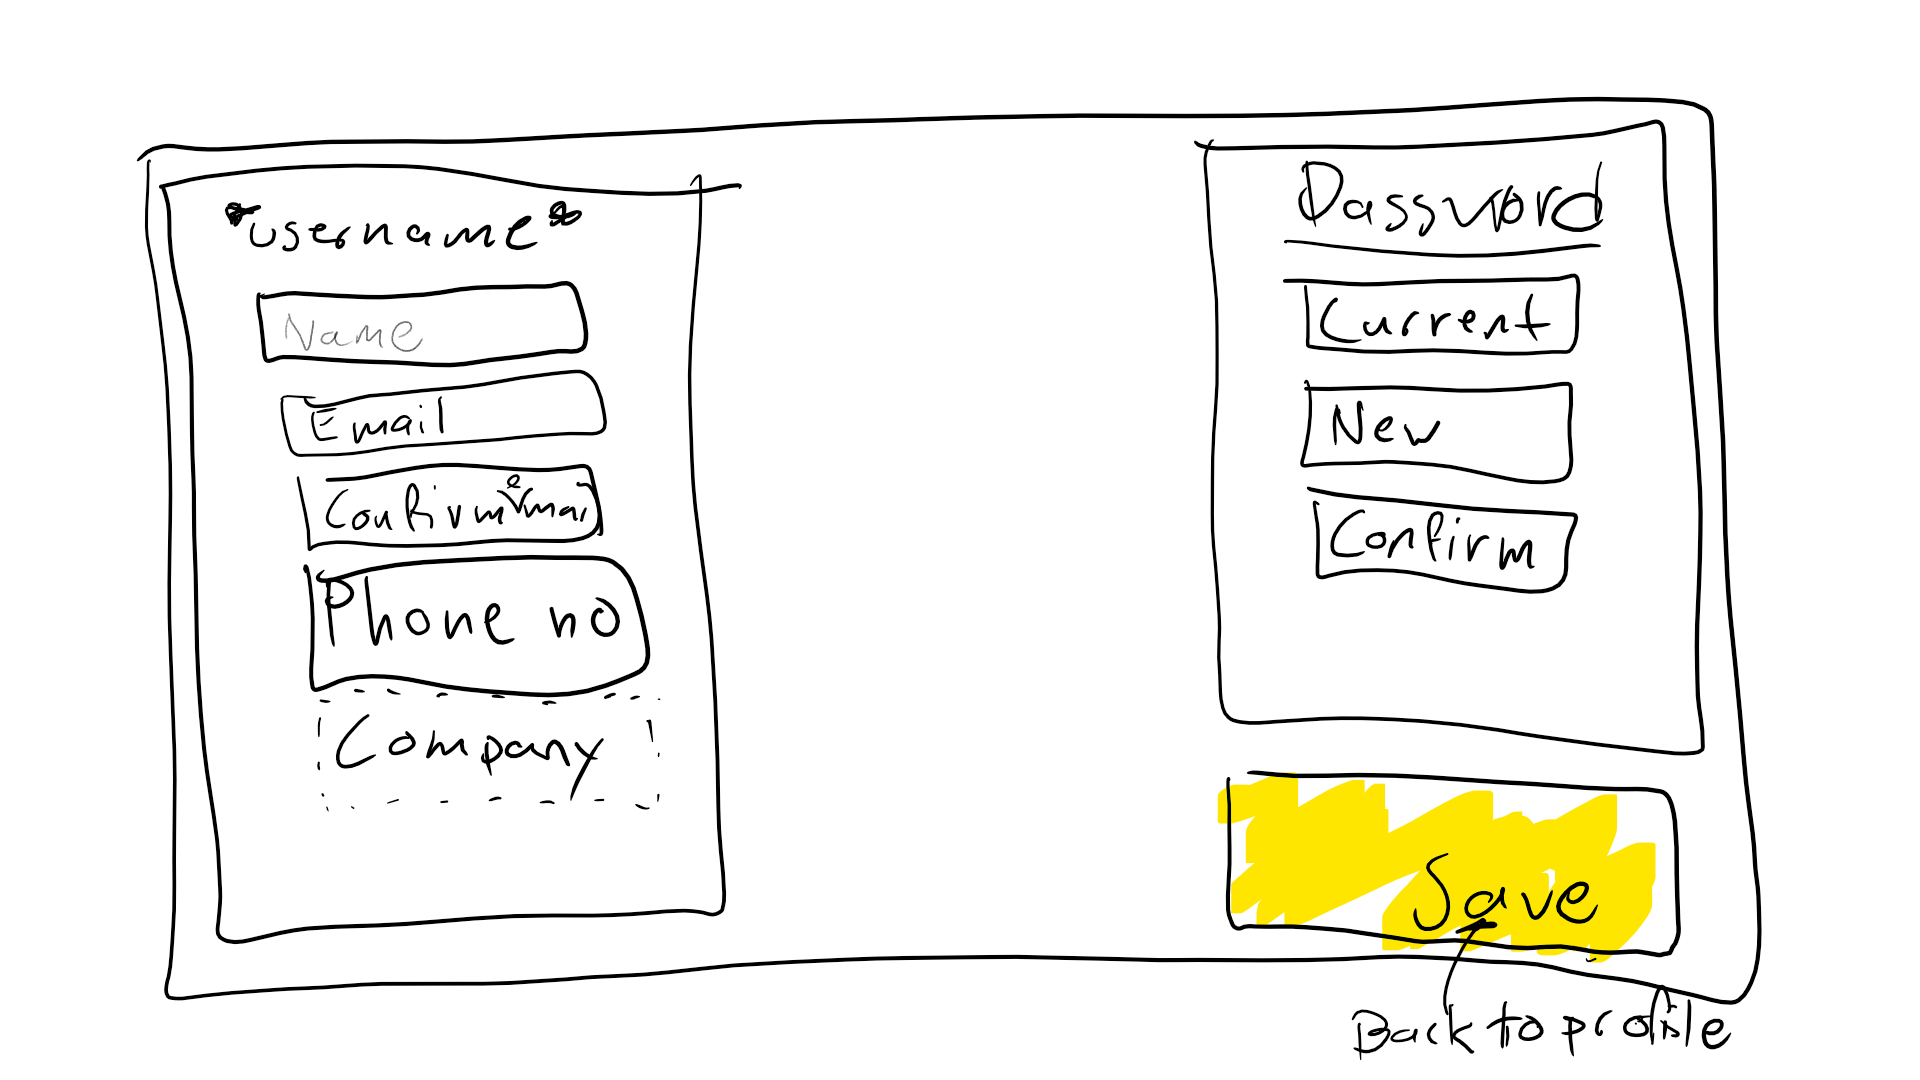 *username*
Name
Email
Confirm email
Phone no
Company
Password
Current
New
Confirm
Save
Back to profile